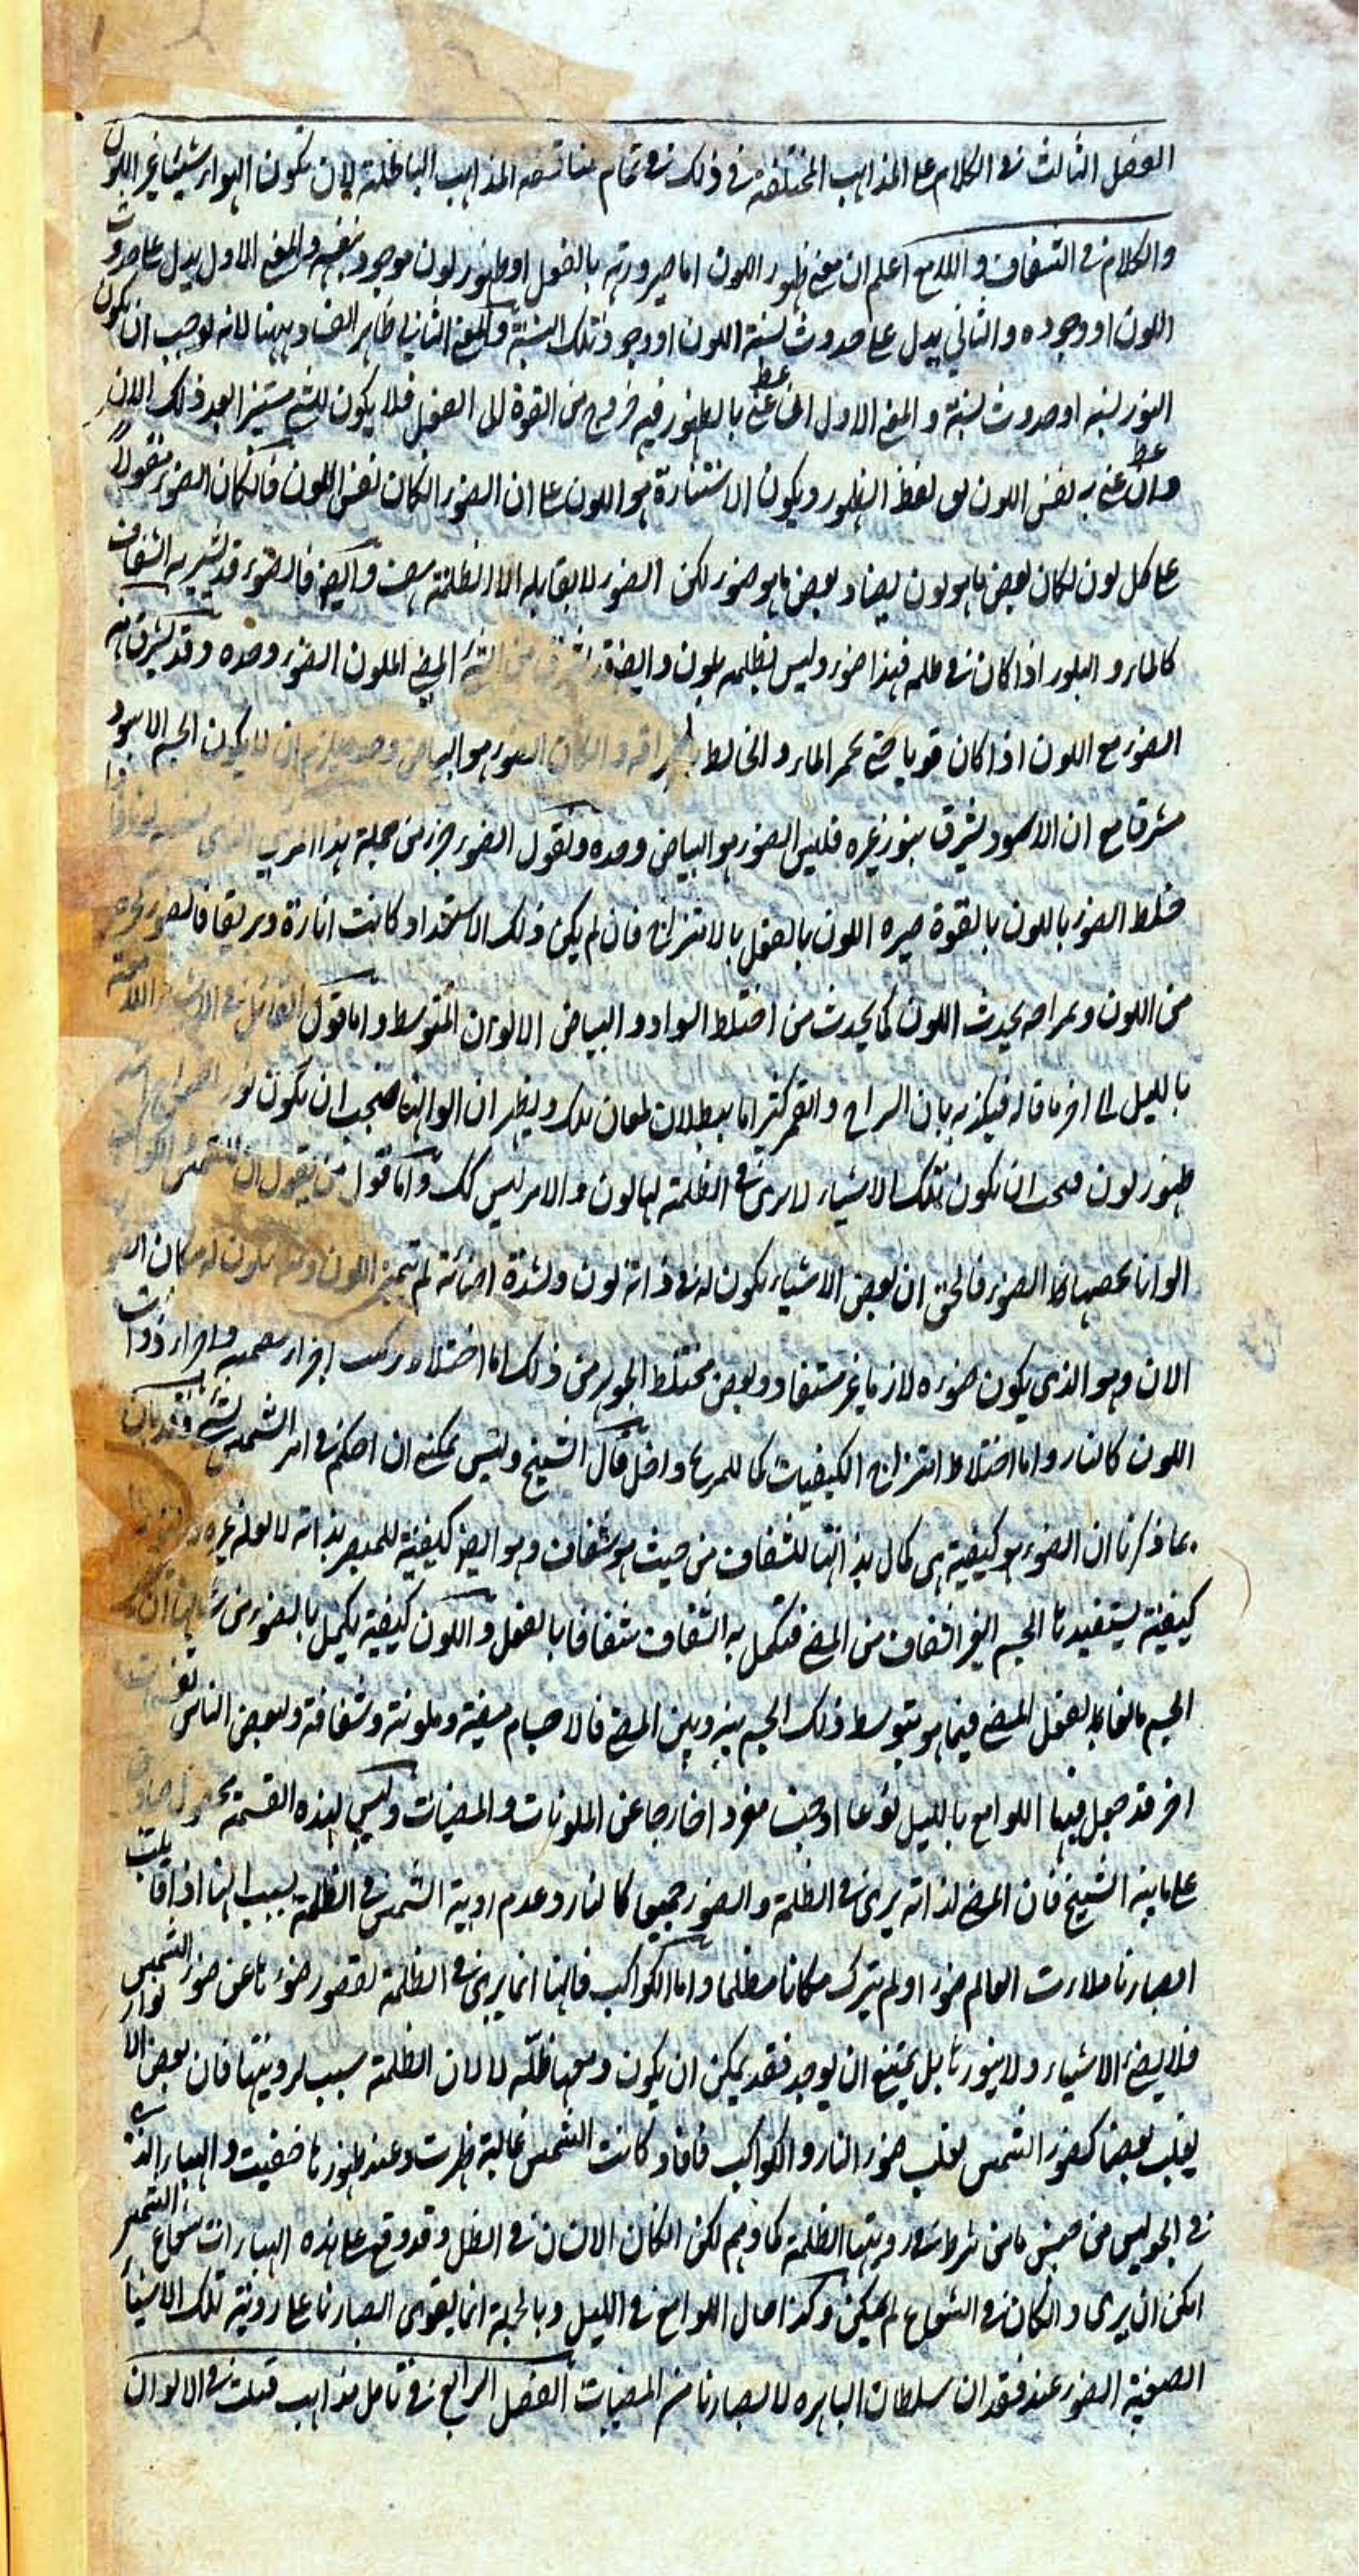 الفصل الثالث في الكلام على المذاهب المختلفة في ذلك في تمام مناقضه المذاهب الباطلة لان تكون النور شيئا غير اللون
والكلام في الشفاف واللامع اعلم ان معنى ظهور اللون اما صيرورته بالفعل او ظهور لون موجود بنفسه والمعنى الاول يدل على حدوث
اللون او وجوده والثاني يدل على حدوث نسبة اللون او وجود تلك النسبة والمعنى الثاني ظاهر الفساد ههنا لانه يوجب ان يكون
النور نسبه او حدوث نسبة والمعنى الاول ان عنى بالظهور فيه خروج من القوة الى الفعل فلا يكون الشي مستنيرا بعد ذلك الان
وان عنى به نفس اللون لغى لفظ الظهور ويكون الاستنارة هو اللون على ان الضوء ان كان نفس اللون فان كان الضوء مقولا
على كل لون لكان بعض ما هو لون يضاد بعض ما هو ضوء لكن الضوء لا يقابله الا الظلمة هف وايضا فالضوء قد يستنير به الشفاف
كالماء والبلور اذا كان في ظلمه فهذا ضوء وليس بظلمه بلون وايضا قد اشرف من الشي المضي الملون الضوء وحده وقد يشرق منه
الضوء مع اللون اذا كان قويا حتى يحمر الماء والحائط باشراقه وان كان الضوء هو البياض وحده فيلزم ان لا يكون الجسم الاسود
مشرقا مع ان الاسود يشرق بنور غيره فليس الضوء هو البياض وحده ونقول الضوء جزء من جملة هذا المرئي الذي
خلط الضوء باللون بالقوة صيره اللون بالفعل بالامتزاج فان لم يكن ذلك الاستعداد كانت انارة وبريقا فالضوء كجزء
من اللون ومزاجه يحدث اللون كما يحدث من اختلط السواد والبياض الالوان المتوسط واما قول القائل في الاشياء اللامعة
بالليل الى اخر ما قاله فيكذبه بان السراج والقمر كثيرا ما يبطلان لمعان تلك ويظهران الوانها فيجب ان يكون نور السراج
ظهور لون فيجب ان تكون تلك الاشياء لا يرى في الظلمة لها لون والامر ليس كك واما قول من يقول ان للشمس والكواكب
الوانا يخصها الضوء فالحق ان بعض الاشياء يكون له في ذاته لون ولشدة اضائته لم يتميز اللون ومنه ما يكون له مكان
الان وهو الذي يكون ضوءه لازما غير مستفاد وبعض مختلط الجوهر من ذلك اما اختلاط تركيب اجزاء مضيئة واجزاء ذوات
اللون كالنار واما اختلاط امتزاج الكيفيات كما للمريخ وزحل قال الشيخ وليس يمكنني ان احكم في امر الشمس بشيء وقد بان
بما ذكرنا ان الضوء هو كيفية هي كمال بذاتها للشفاف من حيث هو شفاف وهو ايضا كيفية للمبصر بذاته لا لعلة غيره
كيفية يستفيدها الجسم الغير الشفاف من المضي فتكمل به الشفاف شفافا بالفعل واللون كيفية يكمل بالضوء من شانها ان
الجسم مانعا بفعل المضي فيما هو بتوسط ذلك الجسم بينه وبين المضي فالاجسام مضيئة وملونة وشفافة ولبعض الناس
اخر قد جعل فيها اللوامع بالليل نوعا او جنسا مفردا خارجا عن الملونات والمضيات وليس لهذه القسمة
على ما بينه الشيخ فان المضي لذاته يرى في الظلمة والضوء جميعا كالنار وعدم روية الشمس في الظلمة بسبب انها اذا قابلت
ابصارنا ملات العالم ضوءا ولم يترك مكانا مظلما واما الكواكب فانها انما يرى في الظلمة لقصور ضوءها عن ضوء الشمس
فلا يضئ الاشياء ولا ينورها بل يمتنع ان يوجد فقد يمكن ان يكون ومعها ظلمة لا لان الظلمة سبب لرويتها فان بعض الانوار
يغلب بعضا كضوء الشمس يغلب ضوء النار والكواكب فاذا كانت الشمس غائبة ظهرت وعند ظهورها خفيت والهباء الذي
في الجو ليس من جنس ما من شرط رويتها الظلمة كما وهم لكن ان كان الانسان في الظل وقد وقع على هذه الهباءات شعاع الشمس
امكن ان يرى وان كان في الشعاع لم يمكن وكذا حال اللوامع في الليل وبالجملة انما يقوى ابصارنا على روية تلك الاشياء
الضعيفة الضوء عند فقدان سلطان الباهره لابصارنا من المضيات الفصل الرابع في تامل مذاهب قيلت في الالوان